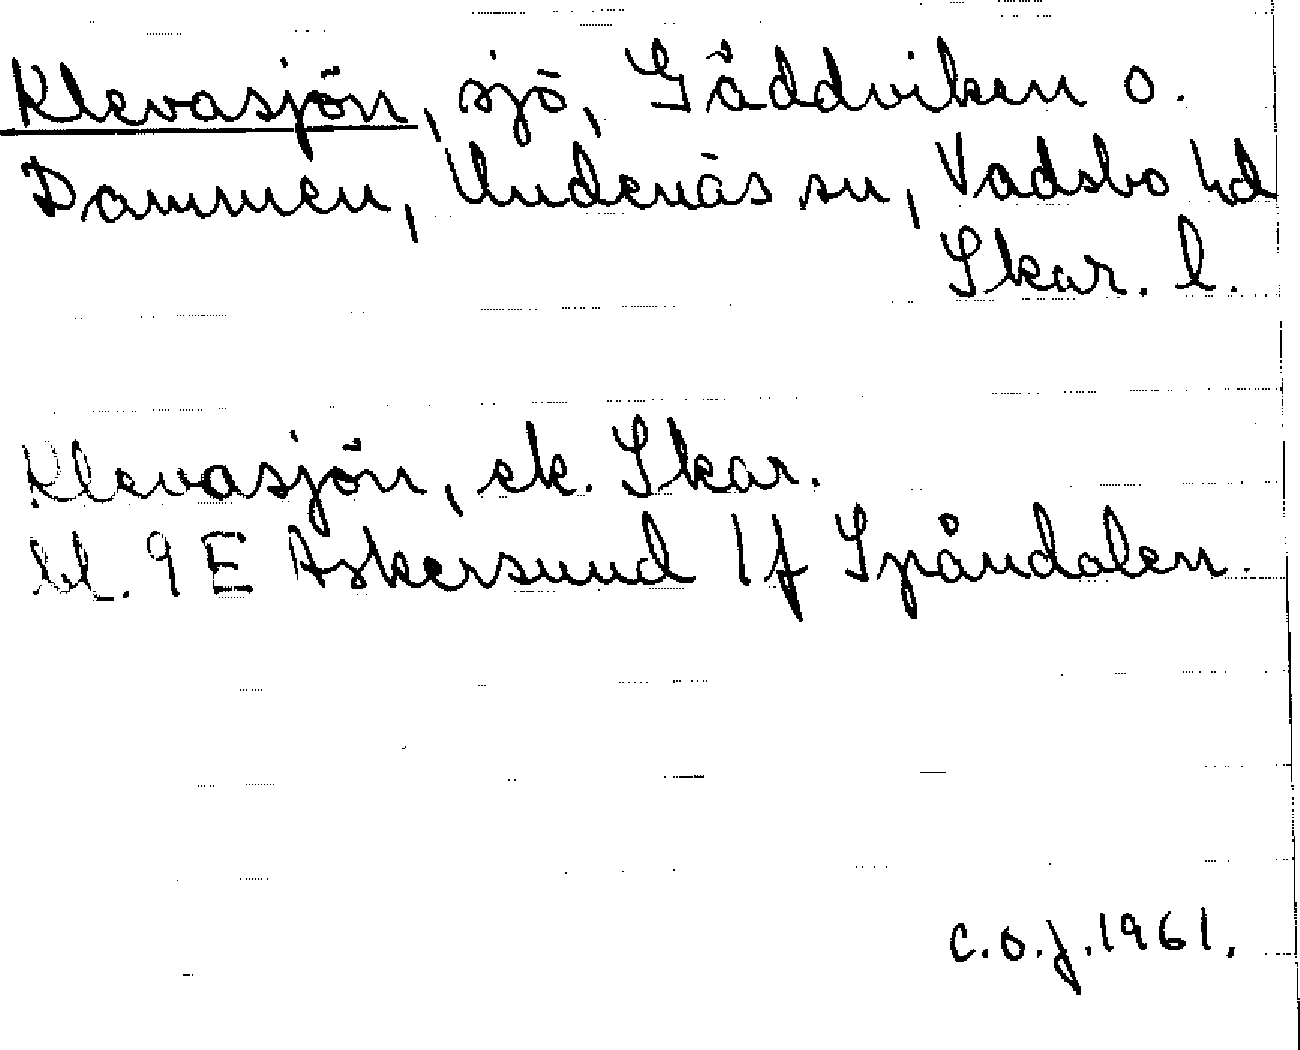 Klevasjön, sjö, Gäddviken o.
Dammen, Undenäs sn, Vadsbo hd
Skar. l.
Klevasjön, ek. Skar.
bl. 9 E Askersund 1 f Spåndalen.
C.O.J. 1961.